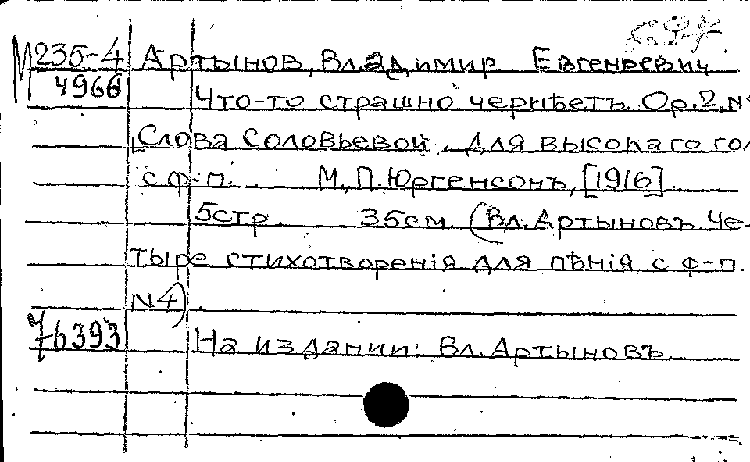 М 235-4 Артынов, Владимир Евгеньевич
4966
Что-то страшно чернѣетъ. Ор.2, №
Слова Соловьевой. Для высокаго гол
с ф-п. М., П. Юргенсонъ, [1916]
5стр. 35см (Вл. Артыновъ. Че-
тыре стихотворенія для пѣнія с ф-п.
№4).
76393 На издании: Вл. Артыновъ.